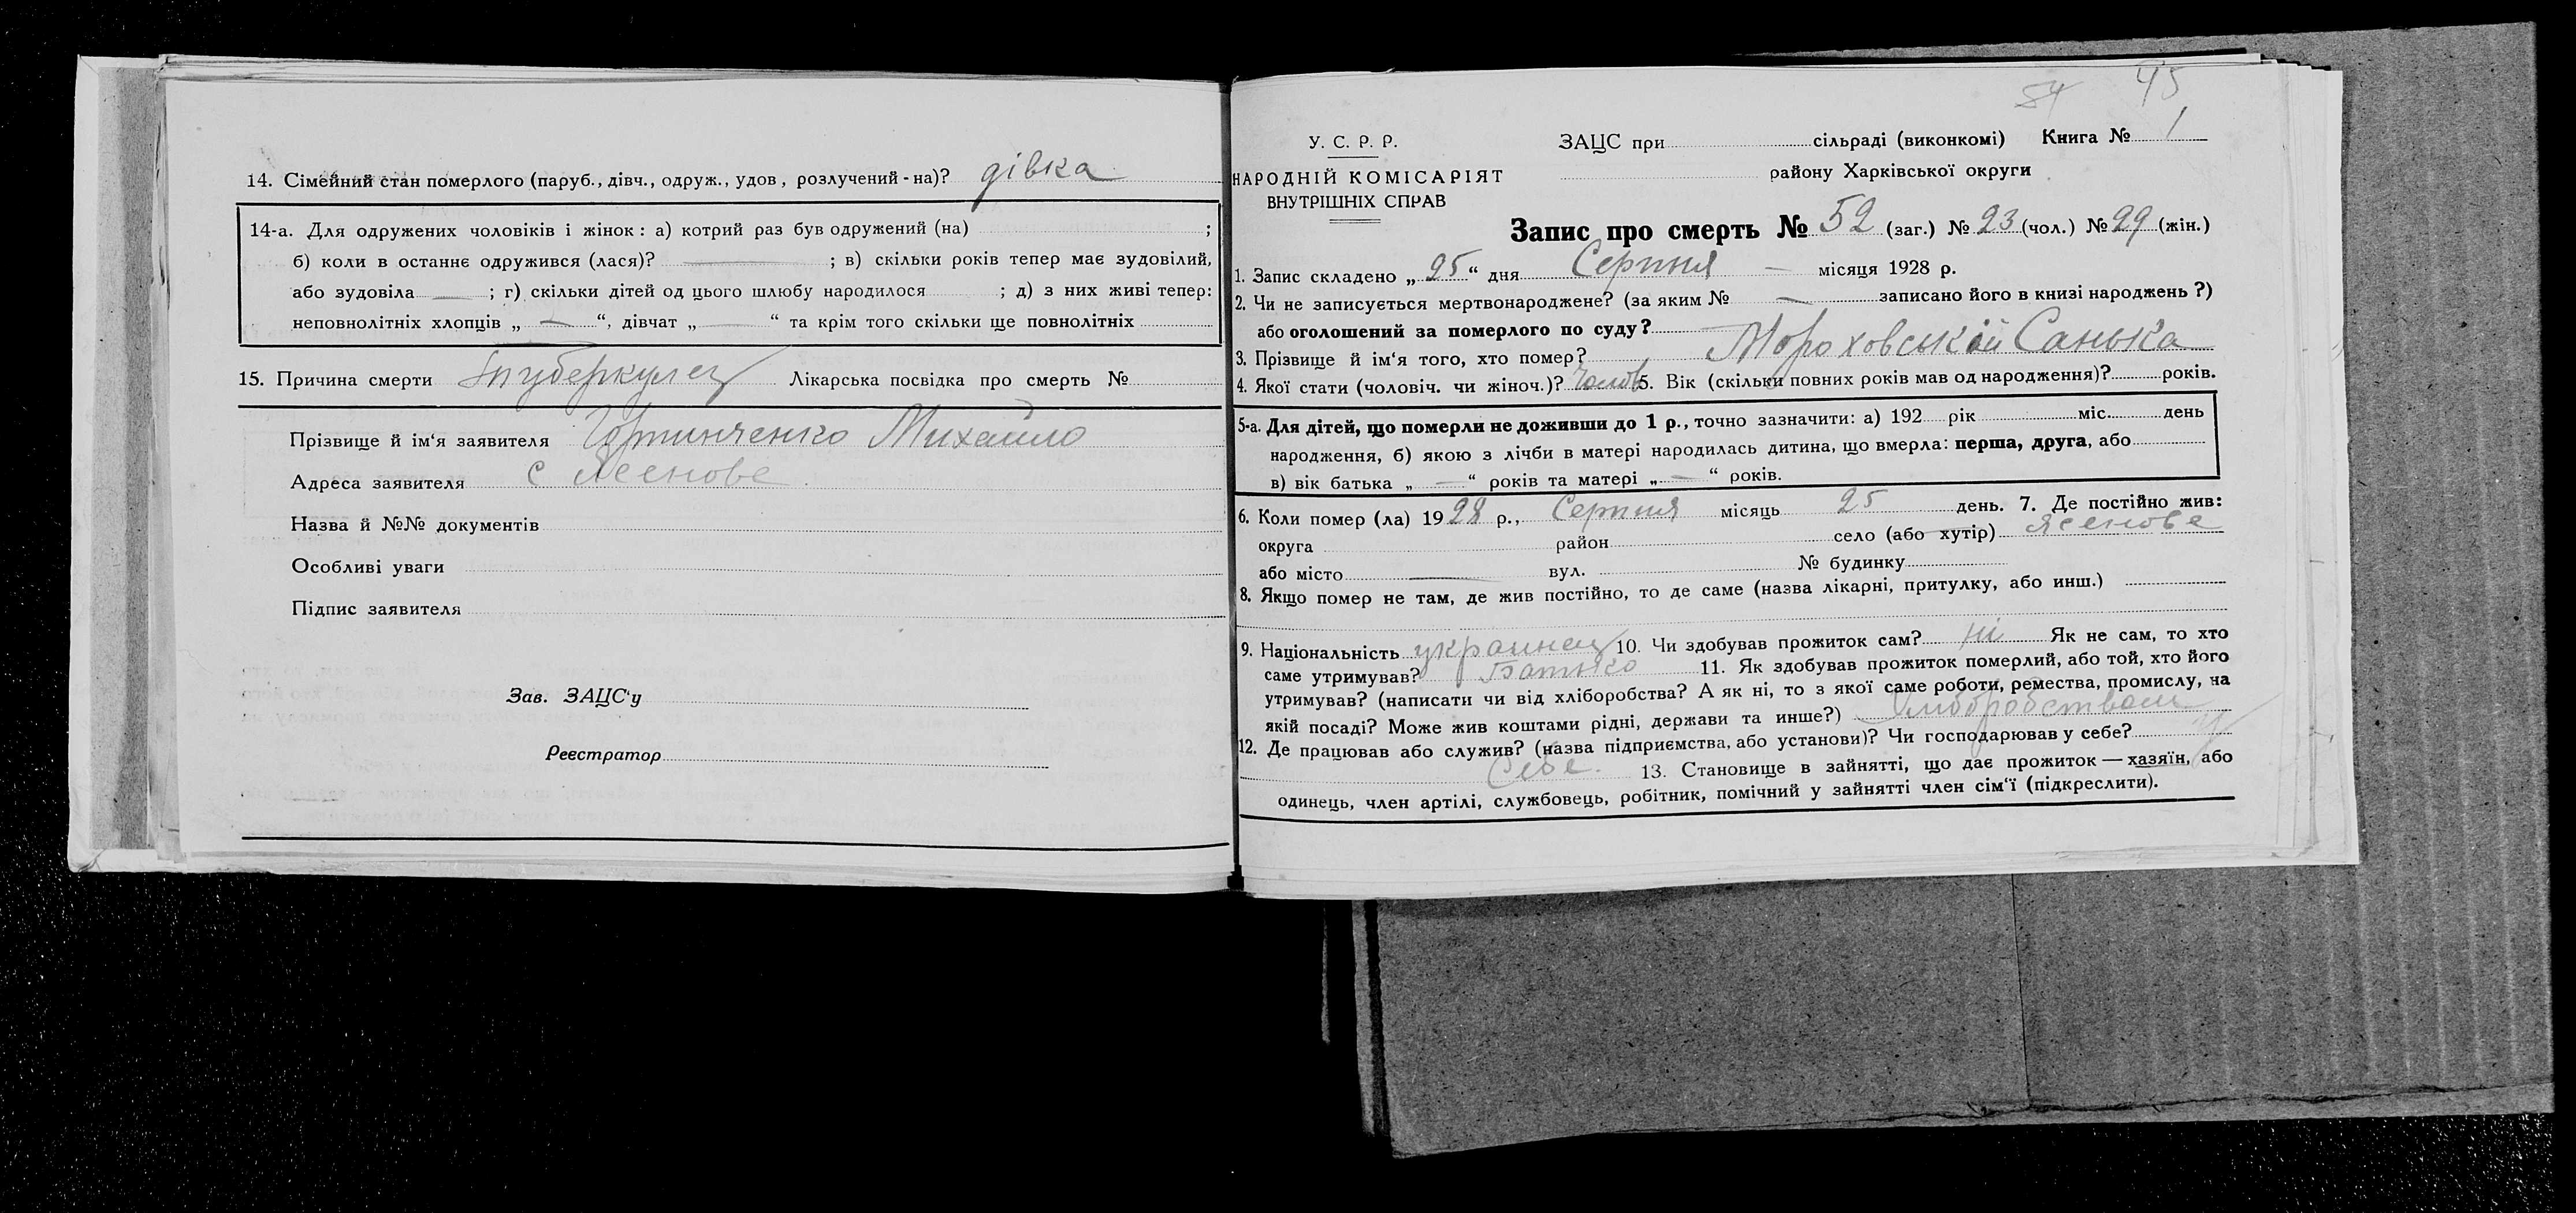 14. Сімейний стан померлого (паруб., дівч., одруж., удов, розлучений-на)? дівка
14-а. Для одружених чоловіків і жінок: а) котрий раз був одружений (на) ;
б) коли в останнє одружився (лася)? — ; в) скільки років тепер має зудовілий,
або зудовіла — ; г) скільки дітей од цього шлюбу народилося ; д) з них живі тепер:
неповнолітніх хлопців „ — “, дівчат „ — “ та крім того скільки ще повнолітніх
15. Причина смерти туберкулез Лікарська посвідка про смерть №
Прізвище й ім‘я заявителя Михайло
Адреса заявителя с Ясенове
Назва й №№ документів
Особливі уваги
Підпис заявителя
Зав. ЗАЦС‘у
Реєстратор
54 45
У. С. Р. Р.
НАРОДНІЙ КОМІСАРІЯТ
ВНУТРІШНІХ СПРАВ
ЗАЦС при сільраді (виконкомі) Книга № 1
району Харківської округи
Запис про смерть № 52 (заг.) № 23 (чол.) № 29 (жін.)
1. Запис складено „ 25 “ дня Серпня — місяця 1928 р.
2. Чи не записується мертвонароджене? (за яким № — записано його в книзі народжень ?)
або оголошений за померлого по суду?
3. Прізвище й ім‘я того, хто помер? Мороховський Санька
4. Якої стати (чоловіч. чи жіноч.)? Чолов. 5. Вік (скільки повних років мав од народження)? років.
5-а. Для дітей, що померли не доживши до 1 р., точно зазначити: а) 192 рік міс. день
народження, б) якою з лічби в матері народилась дитина, що вмерла: перша, друга, або
в) вік батька „ — “ років та матері „ — “ років.
6. Коли помер (ла) 1928 р., Серпня місяць 25 день. 7. Де постійно жив:
округа район село (або хутір) Ясенове
або місто — вул. № будинку
8. Якщо помер не там, де жив постійно, то де саме (назва лікарні, притулку, або инш.)
9. Національність украинец 10. Чи здобував прожиток сам? ні Як не сам, то хто
саме утримував? Батько 11. Як здобував прожиток померлий, або той, хто його
утримував? (написати чи від хліборобства? А як ні, то з якої саме роботи, ремества, промислу, на
якій посаді? Може жив коштами рідні, держави та инше?) Хлібробством
12. Де працював або служив? (назва підприємства, або установи)? Чи господарював у себе? у
Себе. 13. Становище в зайнятті, що дає прожиток — хазяїн, або
одинець, член артілі, службовець, робітник, помічний у зайнятті член сім‘ї (підкреслити).